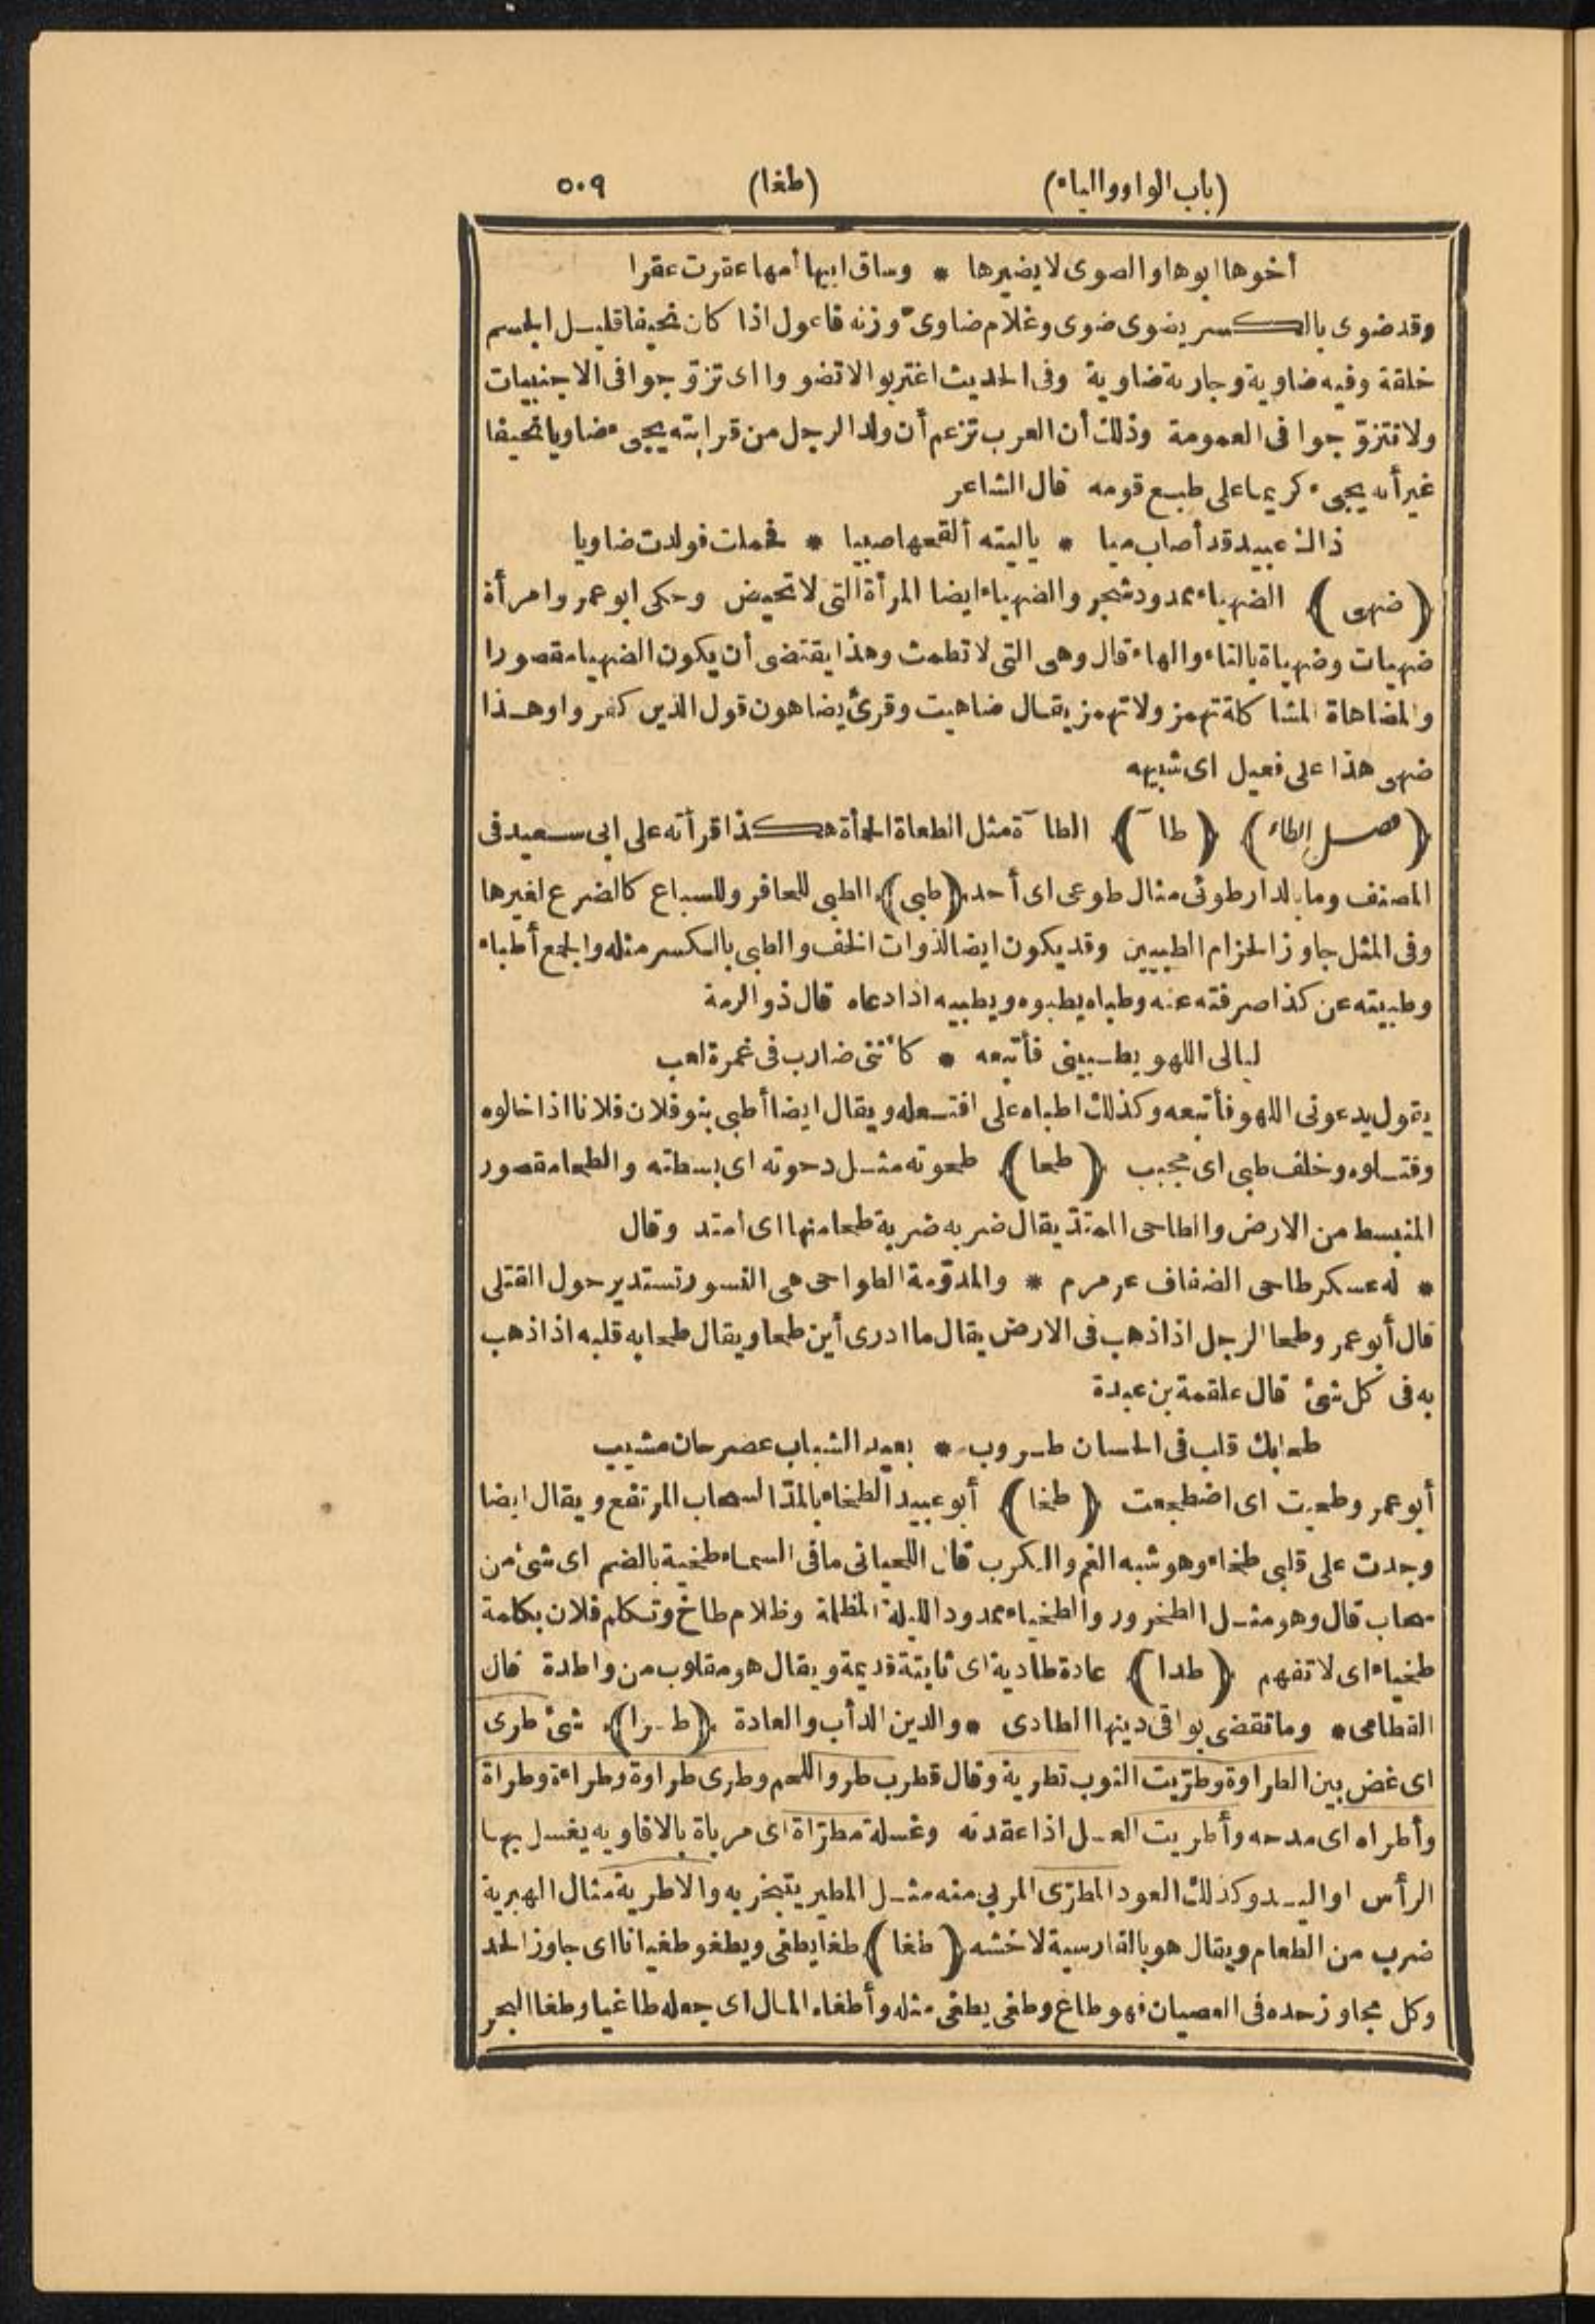 (باب الواو والياء) (طغا) ٥٠٩
أخوها ابوها والضوى لا يضيرها * وساق ابيها أمها عقرت عقرا
وقد ضوى بالكسر يضوى ضوى وغلام ضاوىّ وزنه فاعول اذا كان نحيفا قليل الجسم
خلقة وفيه ضاوية وجارية ضاوية وفى الحديث اغتربوا لا تضووا اى تزوّجوا فى الاجنبيات
ولا تتزوّجوا فى العمومة وذلك أن العرب تزعم أن ولد الرجل من قرابته يجىء ضاويا نحيفا
غير أنه يجىء كريما على طبع قومه قال الشاعر
ذاك عبيد قد أصاب ميا * يا ليته ألقحها صبيا * فحملت فولدت ضاويا
(ضهى) الضهياء ممدود شجر والضهياء ايضا المرأة التى لا تحيض وحكى ابو عمرو امرأة
ضهيات وضهياة بالتاء والهاء قال وهى التى لا تطمث وهذا يقتضى أن يكون الضهيا مقصورا
والمضاهاة المشاكلة تهمز ولا تهمز يقال ضاهيت وقرئ يضاهون قول الذين كفروا وهذا
ضهى هذا على فعيل اى شبيهه
(فصل الطاء) (طآ) الطآة مثل الطعاة الحمأة هكذا قرأته على ابى سعيد فى
المصنف وما بالدار طوئى مثال طوعى اى أحد (طبى) الطبى للحافر وللسباع كالضرع لغيرها
وفى المثل جاوز الحزام الطبيين وقد يكون ايضا لذوات الخف والطبى بالكسر مثله والجمع أطباء
وطبيته عن كذا صرفته عنه وطباه يطبوه ويطبيه اذا دعاه قال ذو الرمة
ليالى اللهو يطبينى فأتبعه * كأننى ضارب فى غمرة لعب
يقول يدعونى اللهو فأتبعه وكذلك اطباه على افتعله ويقال ايضا أطبى بنو فلان فلانا اذا خالوه
وقتلوه وخلف طبى اى مجيب (طحا) طحوته مثل دحوته اى بسطته والطحا مقصور
المنبسط من الارض والطاحى الممتدّ يقال ضربه ضربة طحا منها اى امتد وقال
* له عسكر طاحى الضفاف عرمرم * والمدوّمة الطواحى هى النسور تستدير حول القتلى
قال أبو عمر وطحا الرجل اذا ذهب فى الارض يقال ما ادرى أين طحا ويقال طحا به قلبه اذا ذهب
به فى كل شئ قال علقمة بن عبدة
طحا بك قلب فى الحسان طروب * بعيد الشباب عصر حان مشيب
أبو عمر وطحيت اى اضطجعت (طخا) أبو عبيد الطخاء بالمدّ السحاب المرتفع ويقال ايضا
وجدت على قلبى طخاء وهو شبه الغم والكرب قال اللحيانى ما فى السماء طخية بالضم اى شئ من
سحاب قال وهو مثل الطخرور والطخياء ممدود الليلة المظلمة وظلام طاخ وتكلم فلان بكلمة
طخياء اى لا تفهم (طدا) عادة طادية اى ثابتة قديمة ويقال هو مقلوب من واطدة قال
القطامى * وما تقضى بواقى دينها الطادى * والدين الدأب والعادة (طرا) شئ طرى
اى غض بين الطراوة وطرّيت الثوب تطرية وقال قطرب طرو اللحم وطرى طراوة وطراءة وطراة
وأطراه اى مدحه وأطريت العسل اذا عقدته وغسلة مطرّاة اى مرباة بالافاويه يغسل بها
الرأس او اليد وكذلك العود المطرّى المربى منه مثل المطير يتبخر به والاطرية مثال الهبرية
ضرب من الطعام ويقال هو بالفارسية لاخشه (طغا) طغا يطغى ويطغو طغيانا اى جاوز الحد
وكل مجاوز حده فى العصيان فهو طاغ وطغى يطغى مثله وأطغاه المال اى جعله طاغيا وطغا البحر